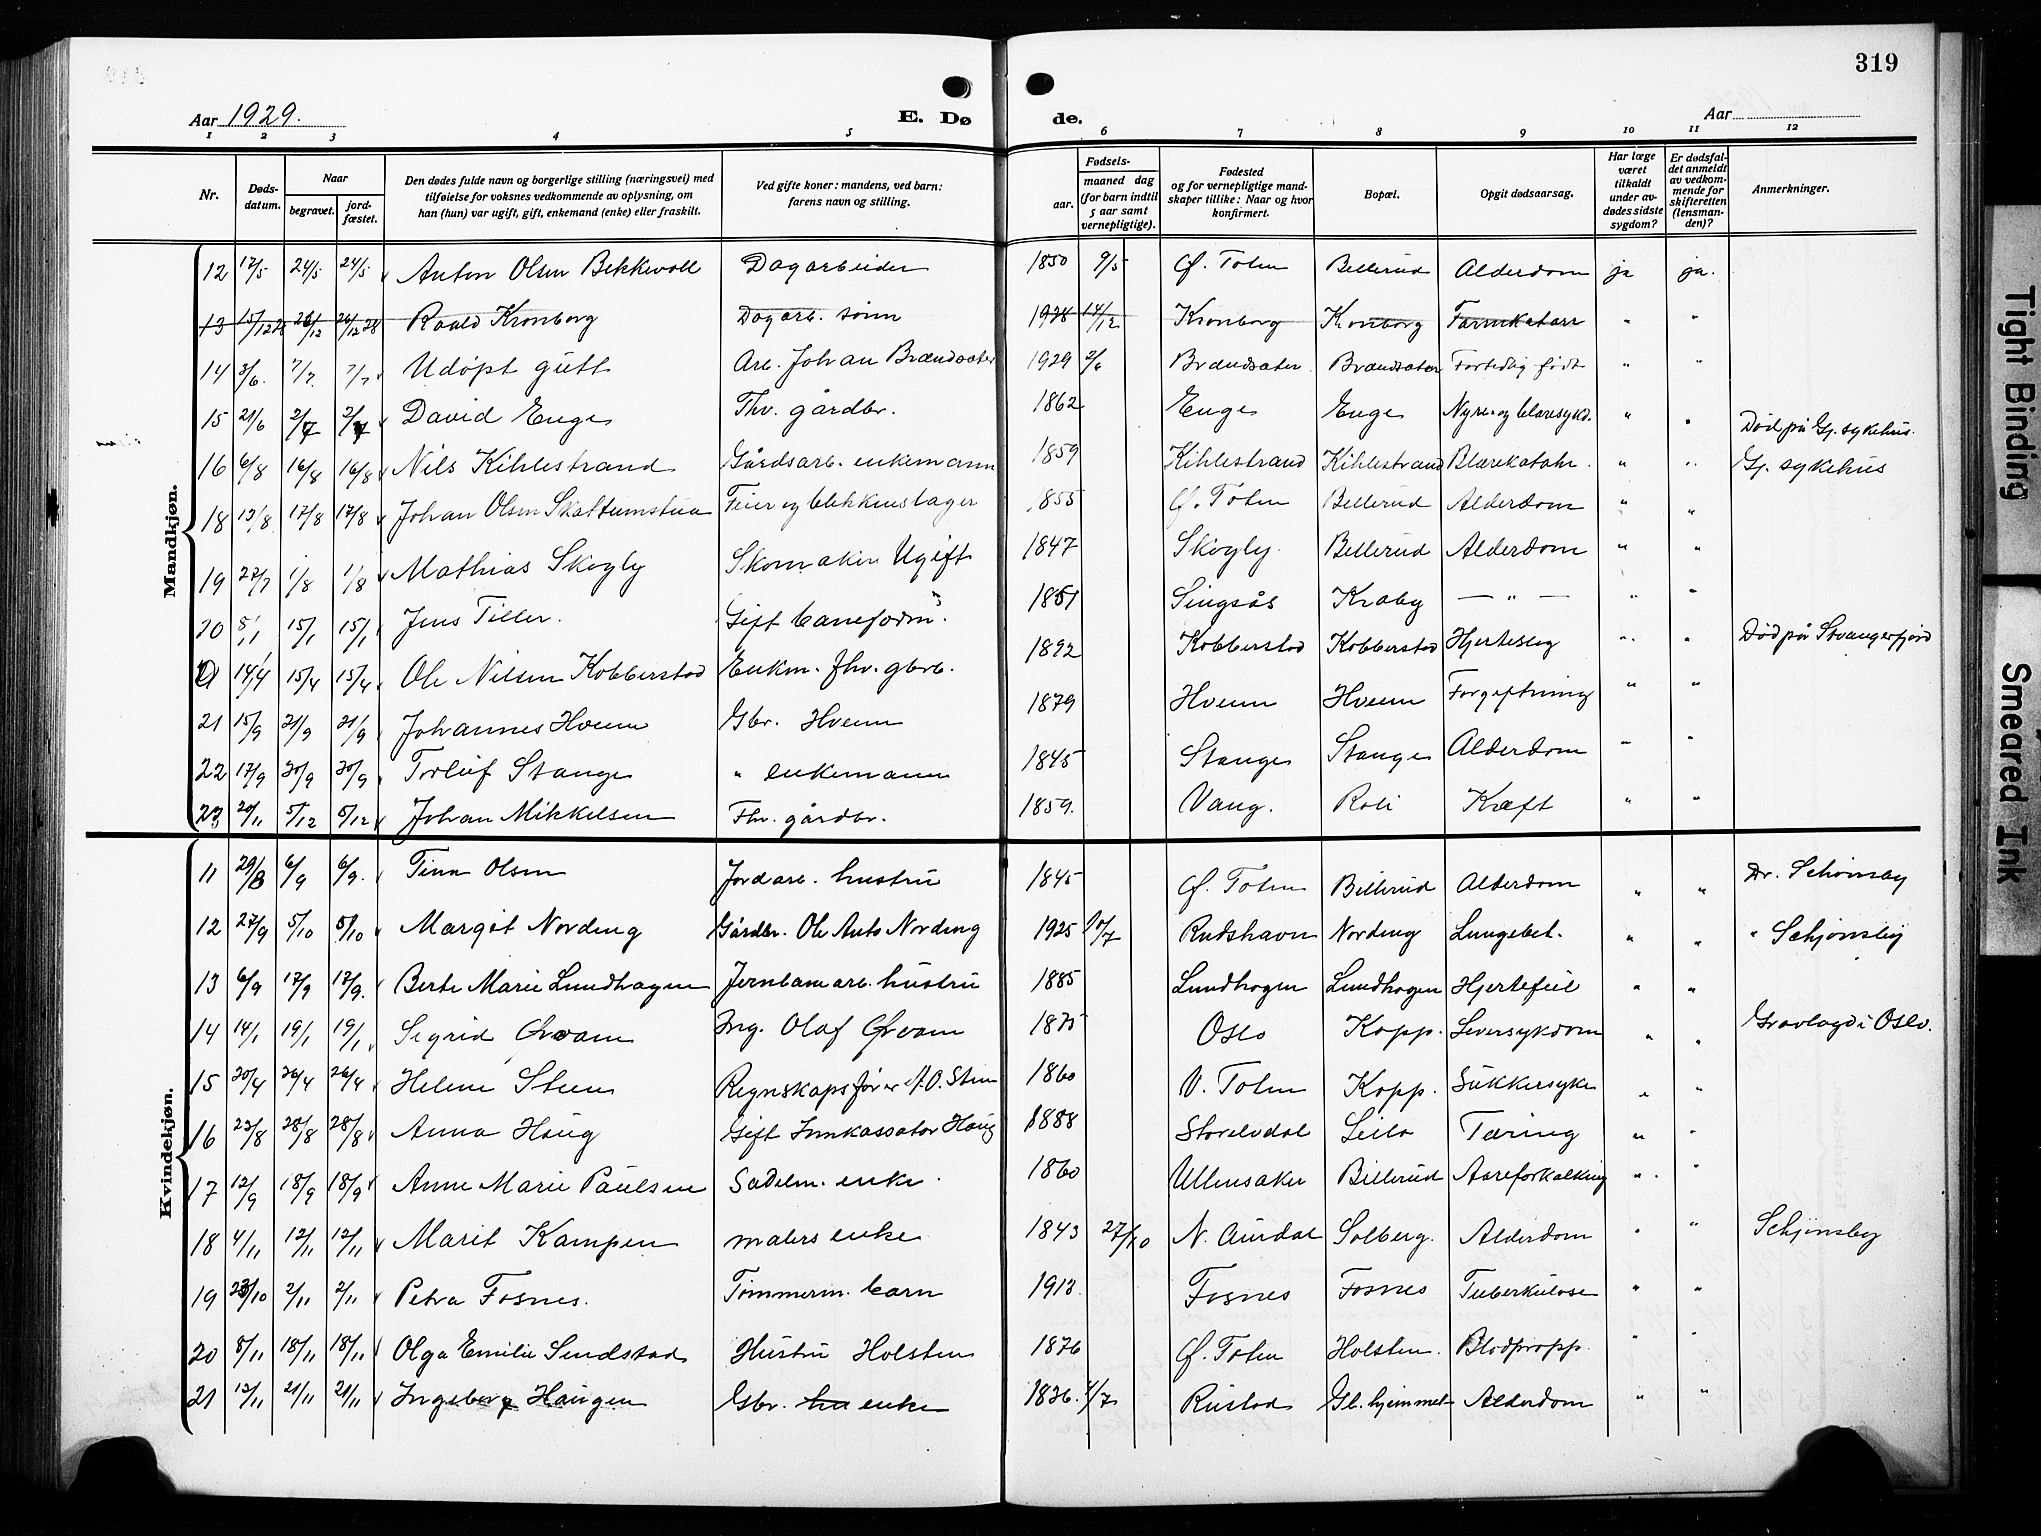 319
Aar 1929.
E. Dø de.
Aar
1 2 3 4 5 6 7 8 9 10 11 12
Nr.
Døds-datum.
Naar
begravet.
jord-fæstet.
Den dødes fulde navn og borgerlige stilling (næringsvei) med
tilføielse for voksnes vedkommende av oplysning, om
han (hun) var ugift, gift, enkemand (enke) eller fraskilt.
Ved gifte koner: mandens, ved barn:
farens navn og stilling.
Fødsels-
aar.
maaned dag
(for barn indtil
5 aar samt
vernepligtige).
Fødested
og for vernepligtige mand-
skaper tillike: Naar og hvor
konfirmert.
Bopæl.
Opgit dødsaarsag.
Har læge
været
tilkaldt
under av-
dødes sidste
sygdom?
Er dødsfal-
det anmeldt
av vedkom-
mende for
skifteretten
(lensman-
den)?
Anmerkninger.
Mandkjøn.
12 17/5 24/5 24/5 Anton Olsen Bekkevoll Dagarbeider 1850 9/5 Ø. Toten Billerud Alderdom ja ja.
13 15/12 28 26/12 26/12 28 Roald Kronborg Dagarb. sønn 1928 14/12 Kronborg Kronborg Tarmkatarr " "
14 3/6. 7/7. 7/7 Udøpt gutt Arb. Johan Brændsæter 1929 2/6 Brændsæter Brændsæter Fortidlig født " "
15 21/6 2/7 2/7 David Enge Fhv. gårdbr. 1862 Enge Enge Nyre- og blæresykd. " " Død på Gj. sykehus.
16 6/8 16/8 16/8 Nils Kihlestrand Gårdsarb. enkemann 1859 Kihlestrand Kihlestrand Blærekatahr. " " Gj. sykehus
18 13/8 17/8 17/8 Johan Olsen Skattumstua Feier og blikkenslager 1855 Ø. Toten Billerud Alderdom " "
19 27/7 1/8 1/8 Mathias Skogly Skomaker Ugift 1847 Skogly. Billerud Alderdom " "
20 8/1 15/1 15/1 Jens Tiller. Gift baneform. 1851 Singsås Kraby — " — " "
14/4 15/4 15/4 Ole Nilsen Kobberstad Enkem. fhv. gbr. 1892 Kobberstad Kobberstad Hjerteslag " " Død på Stvangerfjord
21 15/9 21/9 21/9 Johannes Hveem Gbr. Hveem 1879 Hveem Hveem Forgiftning " "
22 17/9 20/9 20/9 Torleif Stange " enkemann 1845 Stange Stange Alderdom " "
23 20/11 5/12 5/12 Johan Mikkelsen Fhv. gårdbr. 1859. Vang. Roli Kræft " "
Kvindekjøn.
11 29/8 6/9 6/9. Tina Olsen Jordarb. hustru 1845 Ø. Toten Billerud Alderdom " " Dr. Schønsby
12 27/9 5/10 5/10 Margit Nording Gårdbr. Ole Anto Nording 1925 10/7 Rudshavn Nording Lungebet. " " " Schjønsby
13 6/9 17/9 17/9. Berte Marie Lundhagen Jernbanearb. hustru 1885 Lundhagen Lundhagen Hjertefeil " "
14 14/1 19/1 19/1 Sigrid Qvam Ing. Olaf Qvam 1875 Oslo Kopp. Leversykdom " " Gravlagd i Oslo.
15 20/4 26/4 26/4 Helene Steen Regnskapsfører A. O. Steen 1860 V. Toten Kopp. Sukkersyke " "
16 23/8 28/8 28/8 Anna Haug Gift Innkassator Haug 1888 Storelvdal Leila Tæring " "
17 12/9 18/9 18/9 Anne Marie Paulsen Sadelm. enke. 1860 Ullensaker Billerud Aareforkalkning " "
18 4/11 12/11 12/11 Marit Kampen malers enke 1843 27/10 N. Aurdal Solberg. Alderdom " " Schjønsby
19 23/10 2/11 2/11 Petra Fosnes. Tømmerm. barn 1913. Fosnes Fosnes Tuberkulose " "
20 8/11 18/11 18/11 Olga Emilie Sundstad Hustru Holsten 1876 Ø. Toten Holsten. Blodpropp. " "
21 12/11 21/11 21/11 Ingeborg Haugen Gbr. hu enke 1836. 4/7 Rustad Gl. hjemmet Alderdom " "
Tight Binding
Smeared Ink